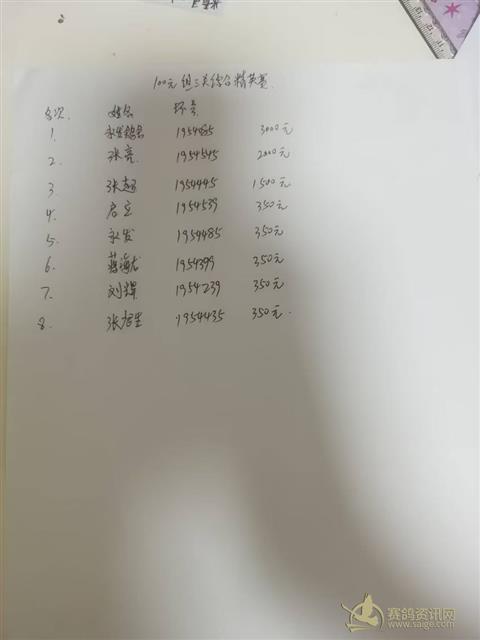 100元组三关综合精英赛
名次 姓名 环号
1. 永发鸽舍 1954485 3000元
2. 张亮 1954545 2000元
3. 张超 1954445 1500元
4. 1954539 350元
5. 永发 1954485 350元
6. 蒋海龙 1954399 350元
7. 刘辉 1954239 350元
8. 1954435 350元
赛鸽资讯网
www.saige.com